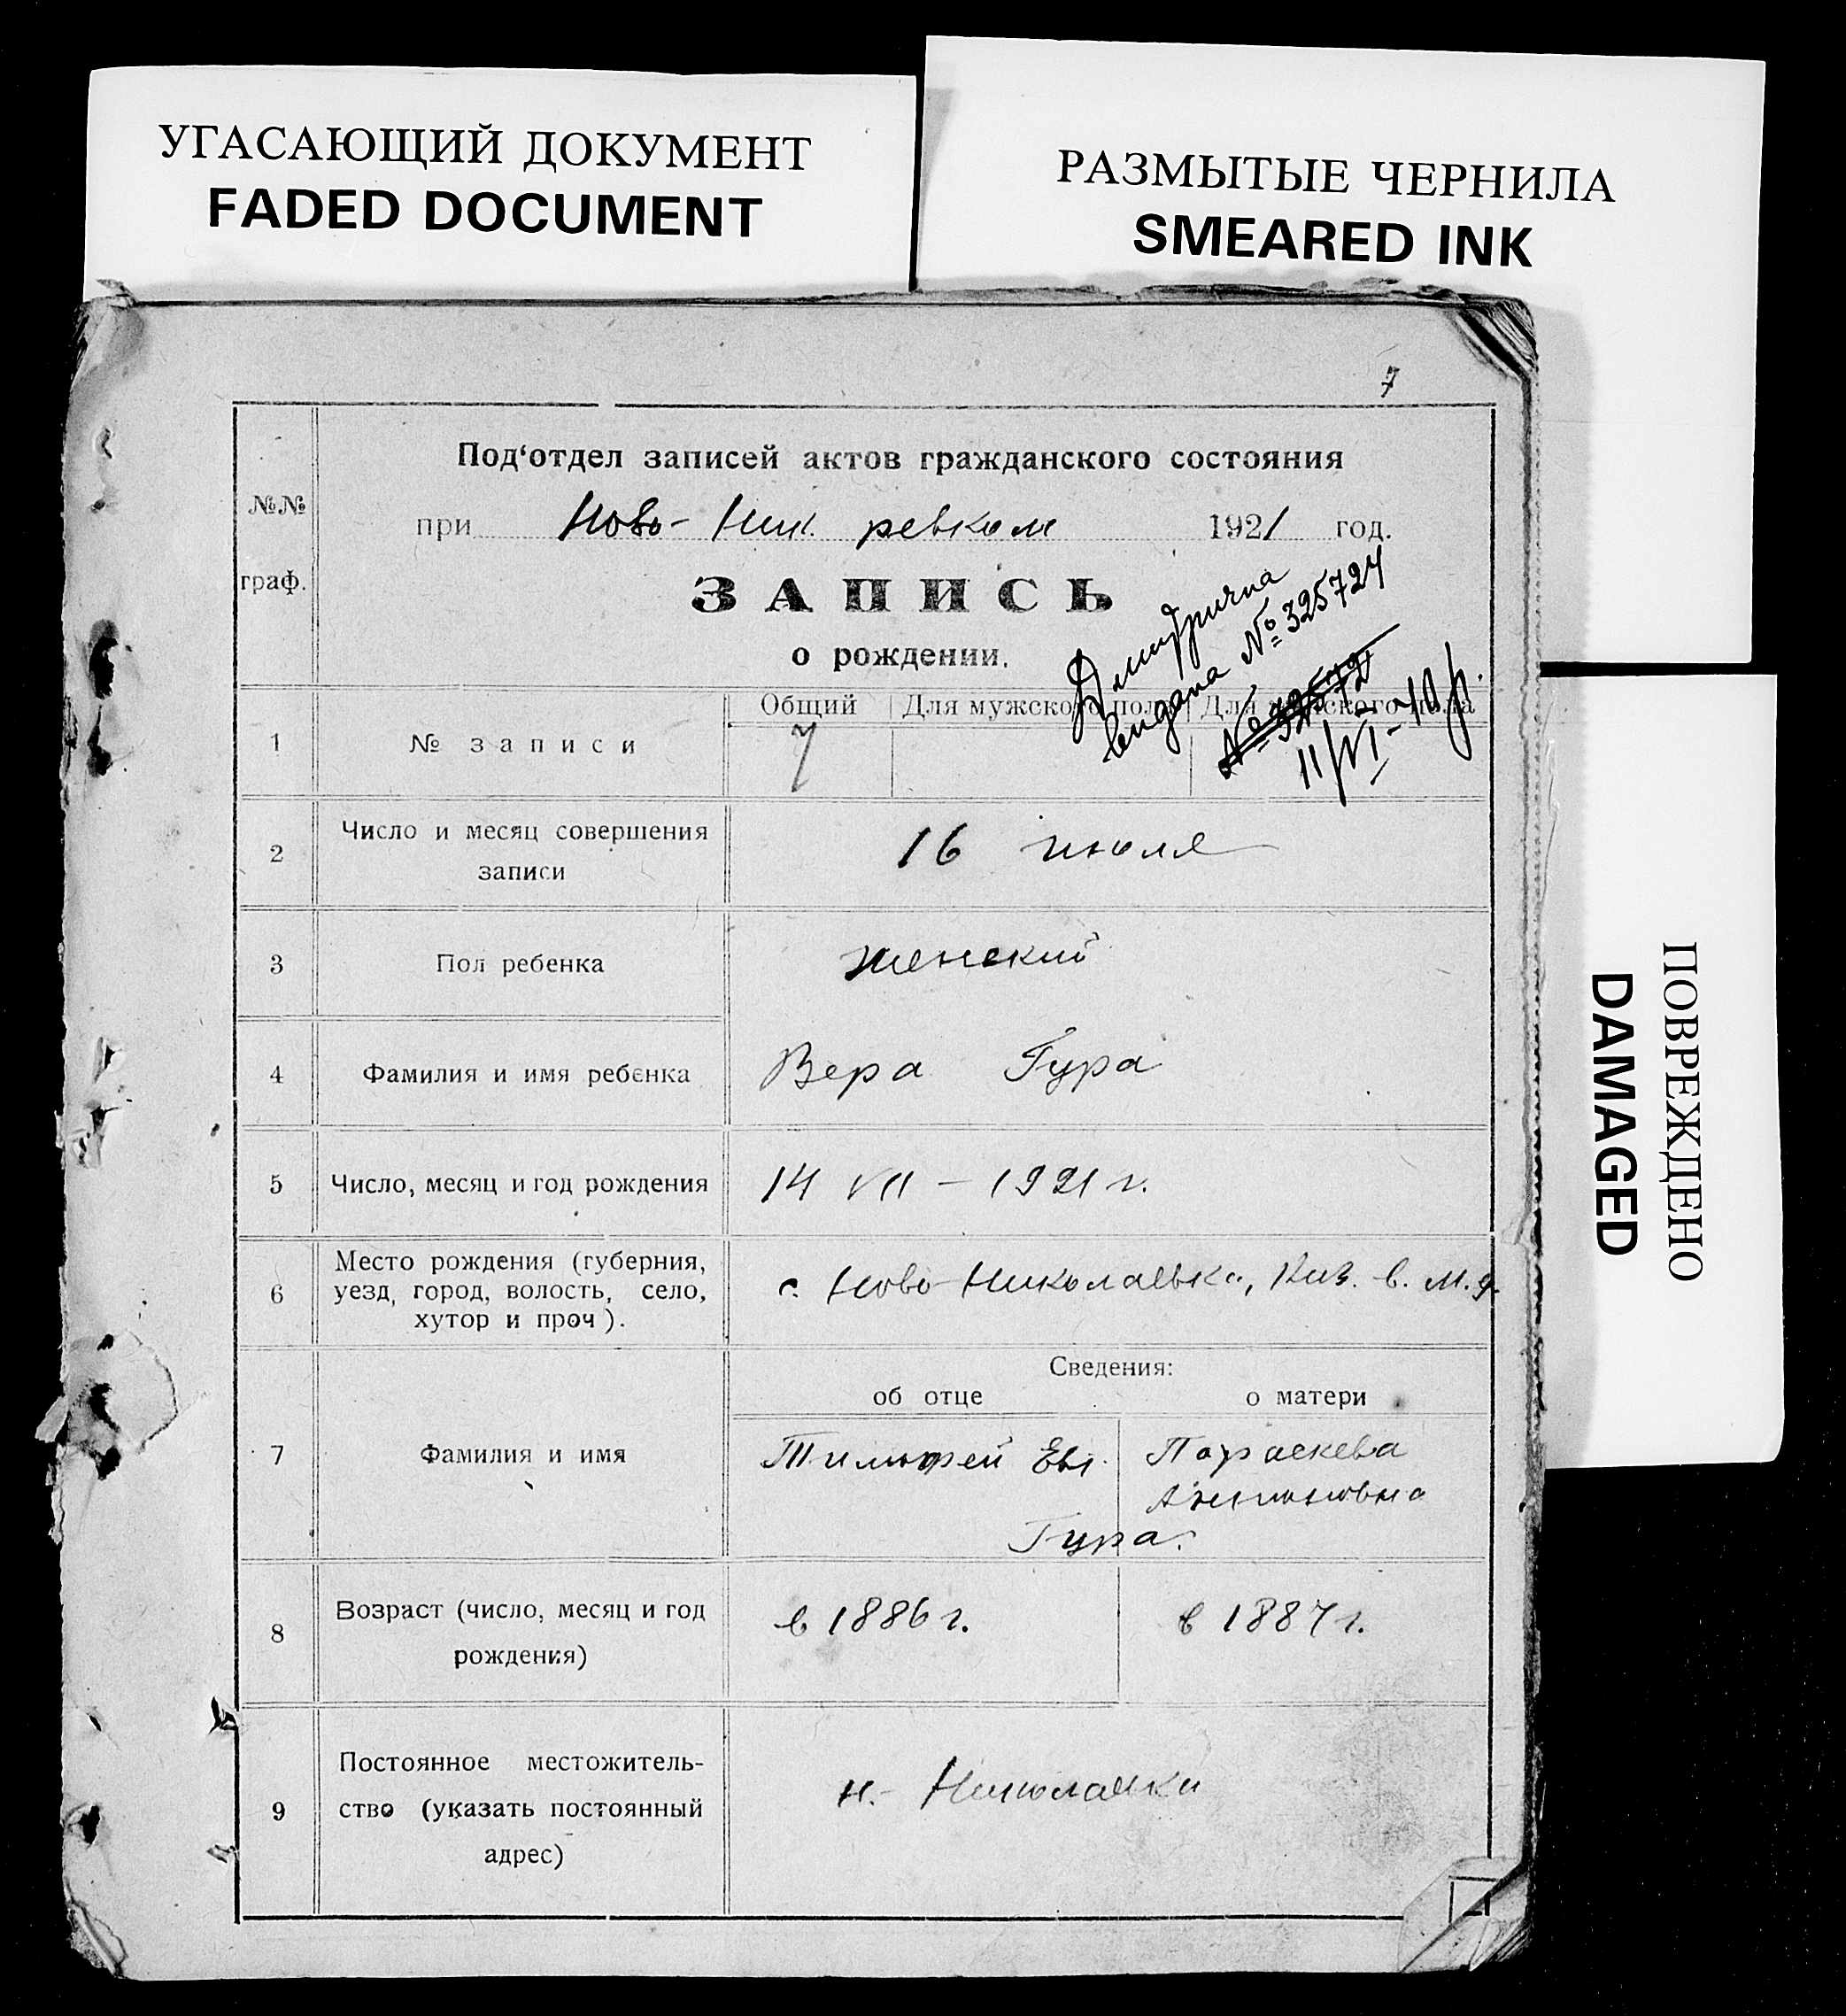 УГАСАЮЩИЙ ДОКУМЕНТ
FADED DOCUMENT
РАЗМЫТЫЕ ЧЕРНИЛА
SMEARED INK
ПОВРЕЖДЕНО
DAMAGED
7
№№
граф.
Под‘отдел записей актов гражданского состояния
при Ново- Ник. ревком 1921 год.
ЗАПИСЬ
о рождении.
видана № 325724
11/VI-40 р.
Общий Для мужского пола Для женского пола
1 № записи 7
2 Число и месяц совершения
записи
16 июля
3 Пол ребенка женский
4 Фамилия и имя ребенка Вера Гура
5 Число, месяц и год рождения 14 VII – 1921 г.
6 Место рождения (губерния,
уезд, город, волость, село,
хутор и проч).
с. Ново-Николаевка, Киз. в. М. у.
Сведения:
об отце о матери
7 Фамилия и имя Тимофей Евг. Параскева
Антоновна
Гура.
8 Возраст (число, месяц и год
рождения)
в 1886 г. в 1887 г.
9 Постоянное местожитель-
ство (указать постоянный
адрес)
Н.- Николаевка